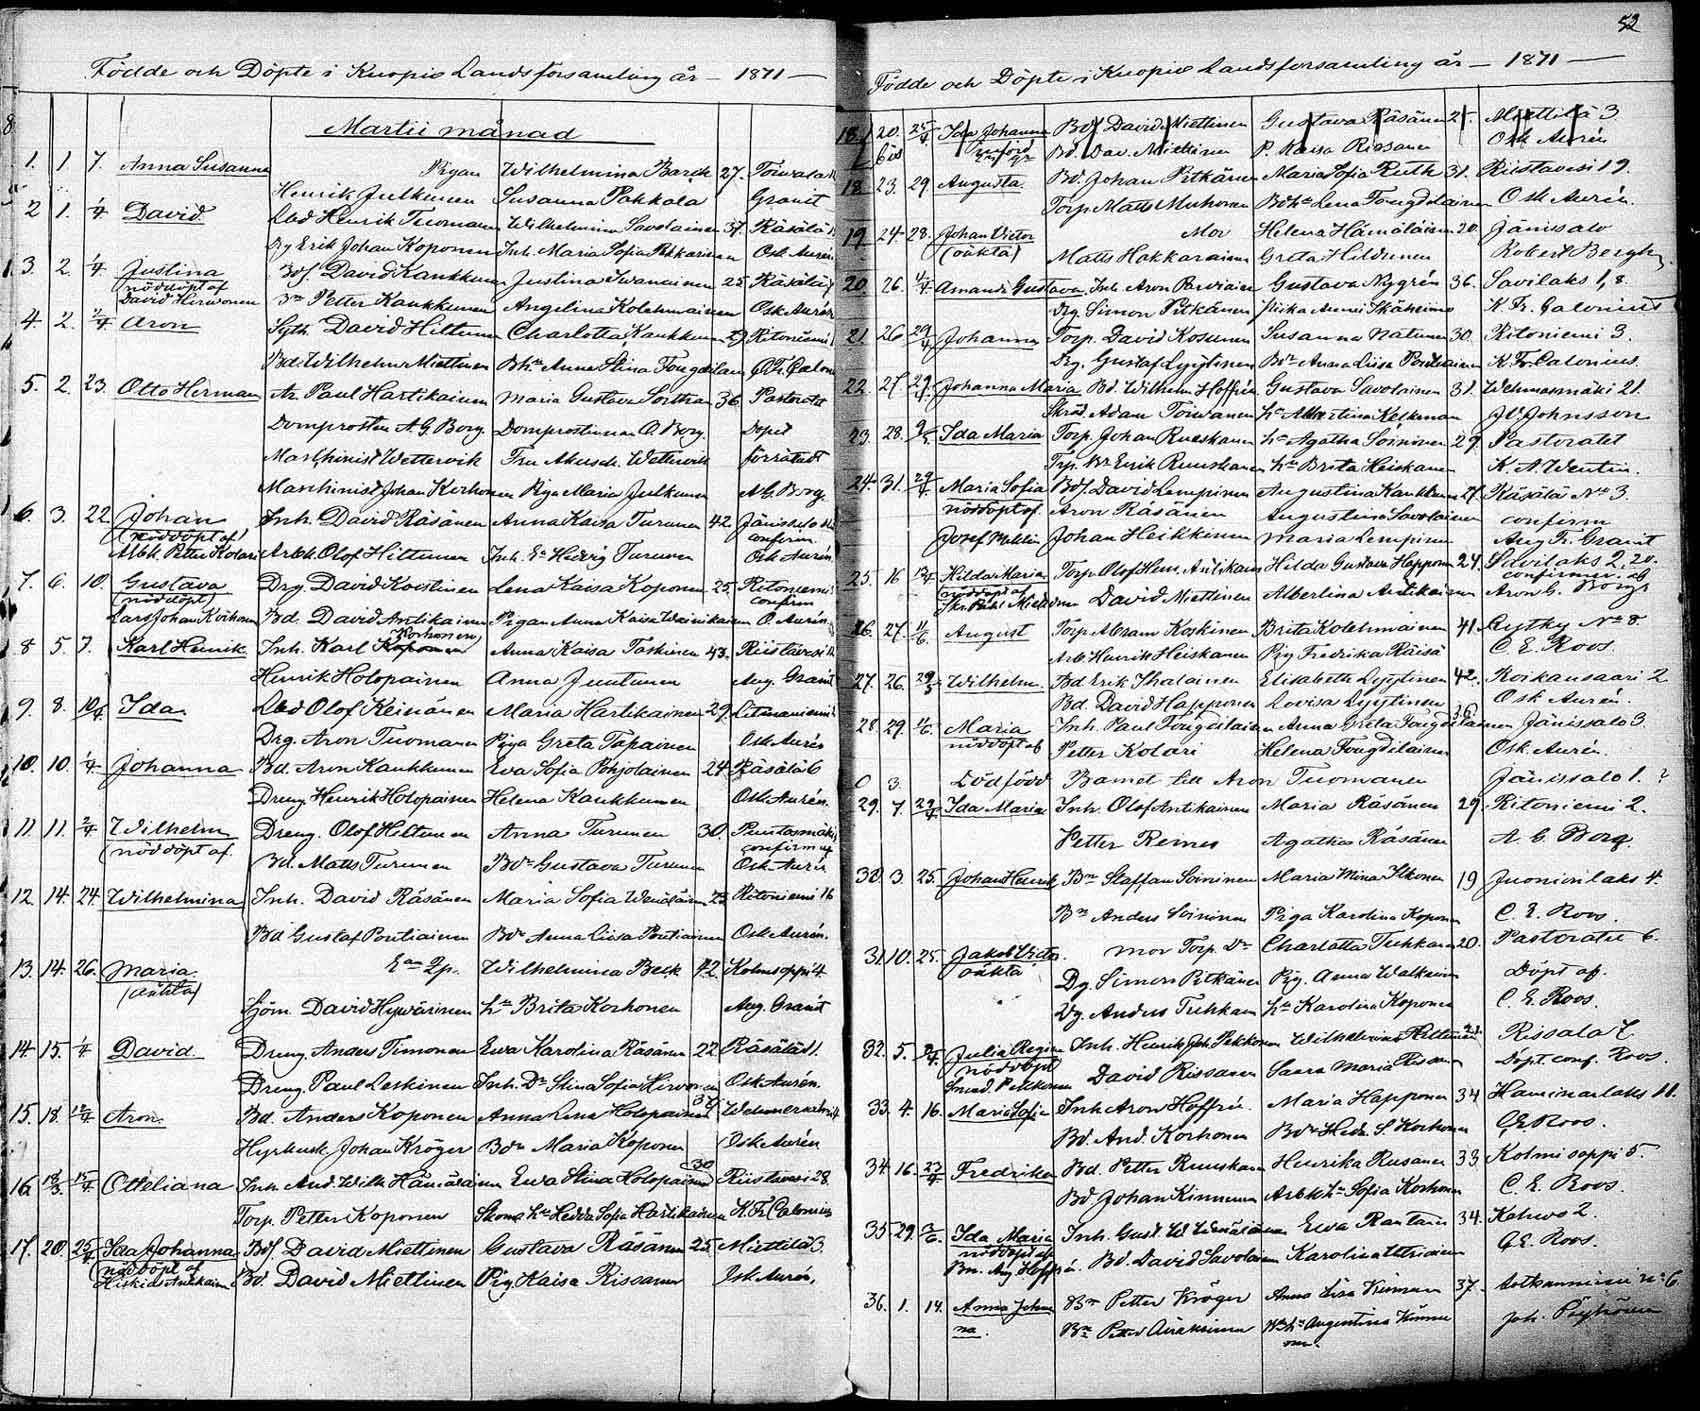 Födde och Döpte i Kuopio Landsförsamling år - 1871 -
Martii månad
1. 1 7. Anna Susanna Pigan Wilhelmina Barck 27. Toiwala
Henrik Julkunen Susanna Pakkala Granit
2 1. 1/4 David Lbd Henrik Tuomanen Wilhelmina Savolainen 37. Räsälä
Dg Erik Johan Koponen Inh. Maria Sofia Pekkarinen Osk. Aurén
3. 2. 1/4 Justina Bdf David Kaukkunen Justina Iwanainen 25 Räsälä
nöddöpt af
David Hirwonen Petter Kaukkunen Angelina Kolehmainen Osk Aurén
4. 2. 2/4 Aron Sytn. David Hiltunen Charlotta Kaukkunen 29 Ritoniemi
Bd. Wilhelm Miettinen Bhn Anna Stina Tougdilain K. Fr. Calon
5. 2 23. Otto Herman Ar. Paul Hartikainen Maria Gustava Sorthan 36. Pastoratet
Domprosten A. G. Borg. Domprostinnan O. Borg. Döpet
Maschinist Wettervik Fru Akusch. Wettervik förrätadt
Maschinist Johan Korhonen Piga Maria Julkunen A G. Borg.
6. 3. 22. Johan Inh. David Räsänen Anna Kaisa Turunen 42. Jänissalo
(nöddöpt af) confirm.
Arbk. Petter Kotari Arbk. Olof Hiltunen Inh. Ea Hedvig Turunen Osk Aurén
7. 6. 10. Gustava Drg. David Koistinen Lena Kaisa Koponen 25. Ritoniemi
(nöddöpt) confirm
Lars Johan Korhonen Bd. David Antikainen Pigan Anna Kaisa Wainikainen O. Aurén
8 5 7. Karl Henrik Inh. Karl Koponen Korhonen Anna Kaisa Taskinen 43. Riistavesi
Henrik Holopainen Anna Juntunen Aug. Granit
9. 8. 10/4 Ida Lbd Olof Keinänen Maria Hartikainen 29. Litmaniemi
Drg. Aron Tuomanen Piga Greta Tapainen Osk Aurén
10. 10. 1/4 Johanna Bd. Aron Kaukkunen Eva Sofia Pohjolainen 24 Räsälä 6
Dreng Henrik Holopainen Helena Kaukkunen Osk Aurén.
11. 11. 2/4 Wilhelm Dreng. Olof Hiltunen Anna Turunen 30. Puutosmäki
(nöddöpt af. confirm af
Bd. Matts Turunen Bda Gustava Turunen Osk Aurén
12. 14. 24. Wilhelmina Inh. David Räsänen Maria Sofia Wenäläinen 25 Ritoniemi 16
Bd Gustaf Poutiainen Bda Anna Lisa Poutiainen Osk Aurén.
13. 14. 26. Maria. Wilhelmina Beck 42. Kolmisoppi 4
(oäkta)
Sjöm. David Hywärinen hn Brita Korhonen Aug. Granit
14. 15. 1/4 David Dreng. Anders Timonen Ewa Karolina Räsänen 22 Räsälä 1.
Dreng. Paul Leskinen Inh. Dr Stina Sofia Hirvonen Osk Aurén.
15 18. 12/4 Aron. Bd. Anders Koponen Anna Lena Holopainen 37
Hyrkusk. Johan Kröger Bda Maria Koponen Osk Aurén
16. 18/3 15/4 Otteliana Inh. And. Wilh. Hämäläinen Ewa Stina Holopainen 30 Riistavesi 28.
Torp. Petter Koponen Skom. hn Hedda Sofia Hartikainen K. Fr. Calonius
17. 20. 25/4 Ida Johanna Bdf. David Miettinen Gustava Räsänen 25. Miettilä 3.
nöddöpt af
Hiskias Antikain Bd. David Miettinen Pig. Kaisa Rissanen Osk Aurén.
52
Födde och Döpte i Kuopio Landsförsamling år - 1871 -
18. 20. 25/4 Ida Johanna Bdf David Miettinen Gustava Räsänen 25. Miettilä 3
Bd. Dav. Miettinen P. Kaisa Rissanen Osk Aurén
18 23. 29. Augusta. Bd. Johan Pitkänen Maria Sofia Ruth 31. Riistavesi 19.
Torp. Matts Muhonen Bdhn Lena Tougdilainen Osk Aurén.
19. 24. 28. Johan Victor Mor Helena Hämäläinen 20. Jänissalo
(oäkta) Matts Hakkarainen Greta Hildunen Robert Bergh
20. 26. 1/4. Amanda Gustava Inh. Aron Parviainen Gustava Nygrén 36. Savilaks 1, 8.
Drg. Simon Pitkänen flicka Anna Skähnimo K. Fr. Calonius
21. 26 29/4 Johanna Torp. David Kosunen Susanna Natunen 30. Ritoniemi 3.
Drg. Gustaf Lyytinen Bda Anna Lisa Poutiainen K. Fr. Calonius.
22. 27. 29/4. Johanna Maria Bd. Wilhelm Hoffrén Gustava Savolainen 31. Wehmasmäki 21.
Skräd. Adam Toiwanen hn Albertina Kekkonen J V Johnsson
23. 28. 9/5 Ida Maria Torp. Johan Ruuskanen hn Agatha Soininen 29. Pastoratet
Torp. Br Erik Ruuskanen hn Brita Heiskanen K. A. Wentin.
24. 31. 29/4 Maria Sofia Bdf. David Lempinen Augustina Kaukkunen 27. Räsälä No 3.
nöddöpt af Aron Räsänen Augustina Savolainen confirm
Josef Johan Heikkinen Maria Lempinen Aug Fr. Granit
25. 16 Hilda Maria Torp. Olof Hen. Antikain Hilda Gustava Happonen 24. Savilaks 2, 20.
(nöddöpt af confirmer. af
David Miettinen Albertina Antikainen Aron G. Borg
26. 27. 11/6. August Torp. Abram Koskinen Brita Kolehmainen 41. Lytky No 8
Arb Henrik Heiskanen Pig Fredrika Räisä C. E. Roos.
27. 26. 29/5 Wilhelm. Bd Erik Ihalainen Elisabeth Lyytinen 42. Roikansaari 2
Bd. David Happonen Lovisa Lyytinen Osk Aurén.
28. 29. 11/6. Maria Inh. Paul Tougdilainen Anna Greta Tougdilainen 36 Jänissalo 3.
nöddöpt af Petter Kotari Helena Tougdilainen Osk. Aurén.
0 3. Dödfödd Barnet till Aron Tuomanen Jänissalo 1.
29. 7. 29/4 Ida Maria Inh. Olof Antikainen Maria Räsänen 29. Ritoniemi 2.
Petter Reines Agatha Räsänen A. G. Borg.
30. 3. 25. Johan Henrik Bn Staffan Soininen Maria Mina Ikonen 19 Juonionlaks 4.
Bn Anders Soininen Piga Karolina Koponen C. E. Roos.
31. 10. 25. Jakob Victor mor Torp. Dr Charlotta Tuhkan 20. Pastoratet 6.
oäkta Dg Simon Pitkänen Pig. Anna Walkainen Döpt af.
Dg. Anders Tuhkan hn Karolina Koponen C. E. Roos.
32. 5. Julia Regina Inh. Henrik Joh. Pekkonen Wilhelmina Hiltunen Rissala 7.
nöddöpt
Smed. Pekkonen David Rissanen Saara Maria Rissanen Döpt conf. Roos.
33. 4. 16. Maria Sofia Inh Aron Hoffrén. Maria Happonen 34 Haminanlaks 11.
Bd. And. Korhonen Bda Hedv. S. Korhonen C. E. Roos.
34. 16. 23/4 Fredrika Bd. Petter Ruuskan Henrika Rusanen 33. Kolmisoppi 5.
Bd Johan Kinnunen Arbk hn Sofia Korhonen C. E. Roos.
35. 29. Ida Maria Inh. Gust. W. Wenäläinen Ewa Rantain 34. Kehvo 2.
nöddöpt af
Bn. Aug Hoffrén. Bd. David Savolainen Karolina Utriainen C. E. Roos.
36. 1. 14. Anna Johanna. Bn Petter Kröger Anna Lisa Kinnunen 37. No 6.
Bn Petter Airaksinen Bdhn Augustina Kinnunen. Joh. Pöyhönen